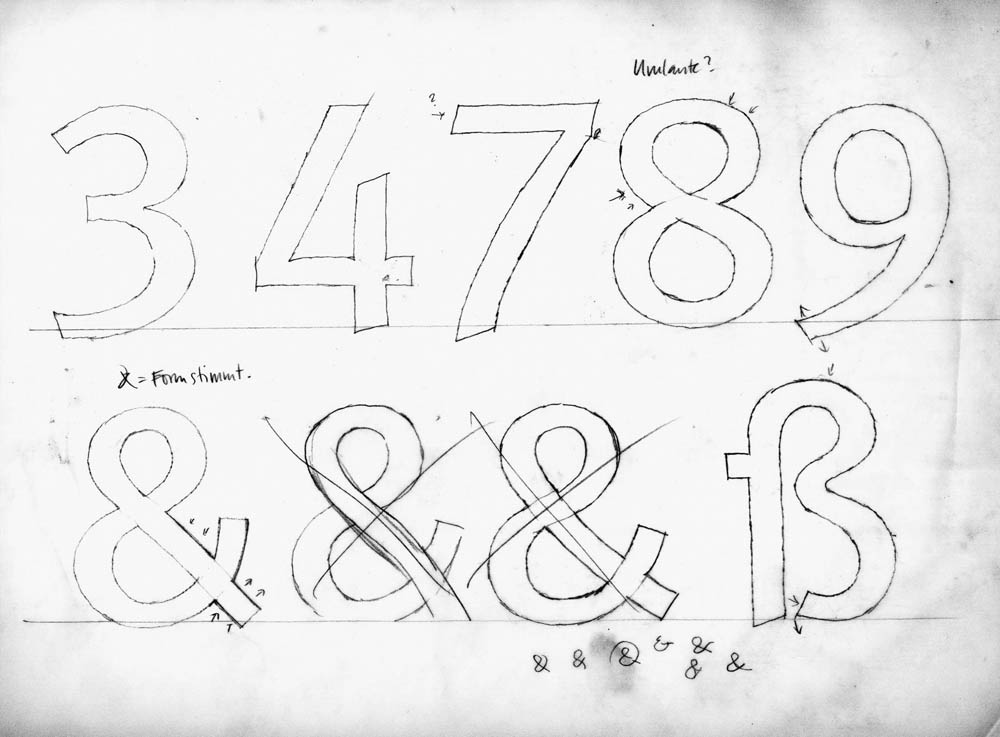 Umlaute?
?
3 4 7 8 9
& = Form stimmt.
& & & ß
& & & & & & &